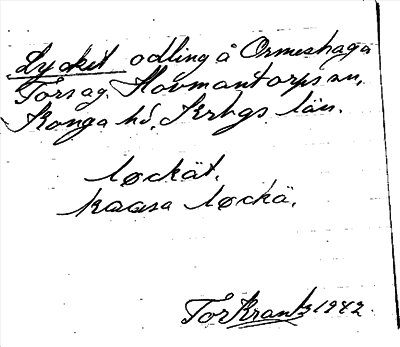 Lycket odling å Ormeshaga
Torsag. Hovmantorps sn,
Konga hd, Krbgs län.
løckät.
kaasa løckä,
Tor Krantz 1942.